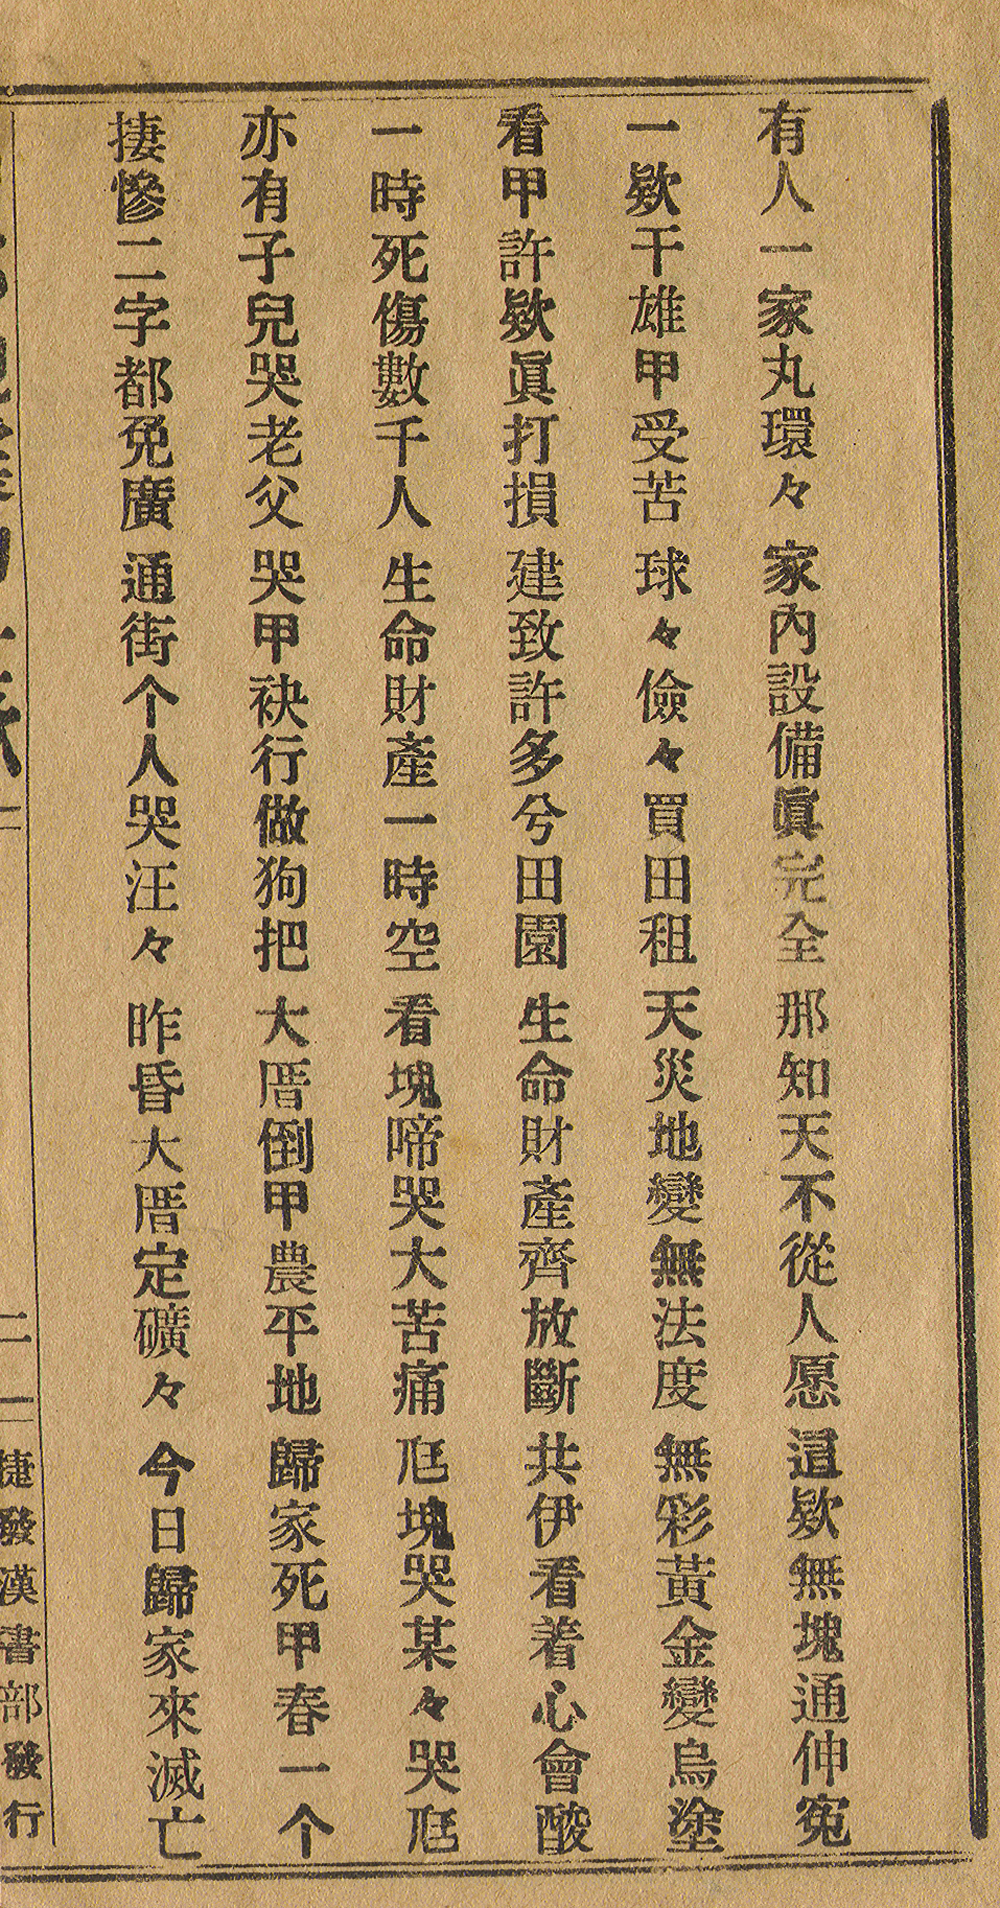 有人一家丸環々 家內設備眞完全 那知天不從人愿 這欵無塊通伸寃
一欵干雄甲受苦 球々儉々買田租 天災地變無法度 無彩黃金變烏塗
看甲許欵眞打損 建致許多兮田園 生命財產齊放斷 共伊看着心會酸
一時死傷數千人 生命財產一時空 看塊啼哭大苦痛 尫塊哭某々哭尫
亦有子兒哭老父 哭甲袂行做狗把 大厝倒甲農平地 歸家死甲春一个
捿慘二字都免廣 通街个人哭汪々 昨昏大厝定礦々 今日歸家來滅亡
二一
捷發漢書部發行